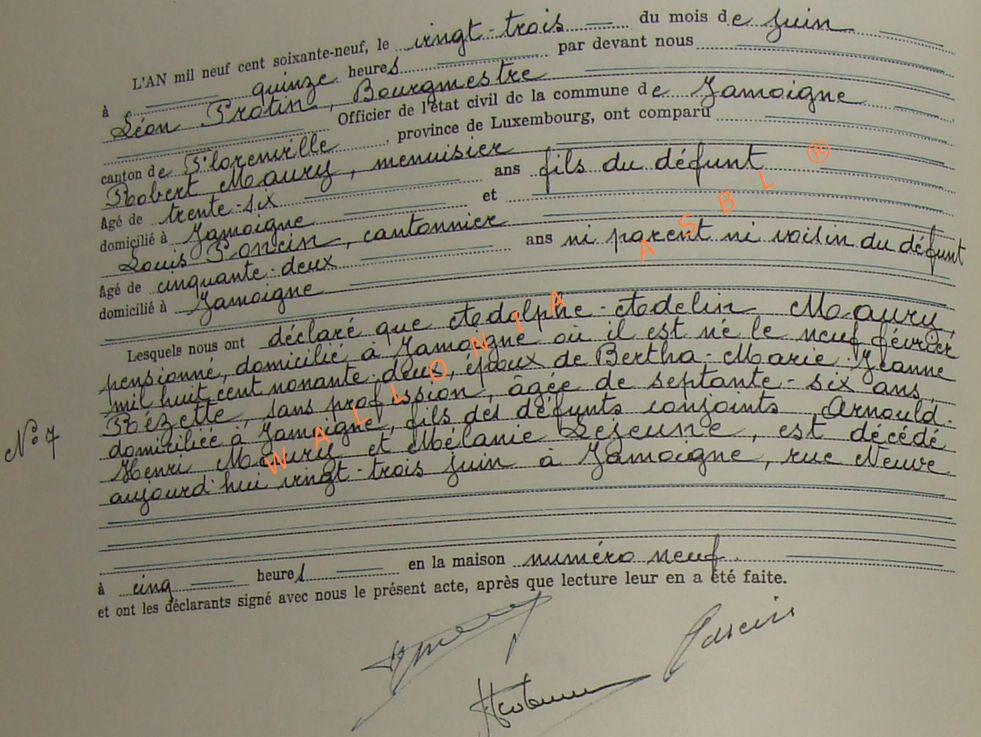 L'AN mil neuf cent soixante-neuf, le vingt-trois du mois de juin
à quinze heures par devant nous
Léon Protin, Bourgmestre
Officier de l'état civil de la commune de Jamoigne
canton de Florenville, province de Luxembourg, ont comparu
Robert Maury, menuisier
Agé de trente-six ans fils du défunt
domicilié à Jamoigne et
Louis Poncin, cantonnier
Agé de cinquante-deux ans ni parent ni voisin du défunt
domicilié à Jamoigne
Lesquels nous ont déclaré que Adolphe-Adelin Maury,
pensionné, domicilié à Jamoigne où il est né le neuf février
mil huit cent nonante-deux, époux de Bertha-Marie-Jeanne
Rézette, sans profession, âgée de septante-six ans,
domiciliée à Jamoigne, fils des défunts conjoints, Arnould-
N° 7
Henri Maury et Mélanie Lejeune, est décédé
aujourd'hui vingt-trois juin à Jamoigne, rue Neuve
à cinq heures en la maison numéro neuf.
et ont les déclarants signé avec nous le présent acte, après que lecture leur en a été faite.
WALLONIA ASBL ®